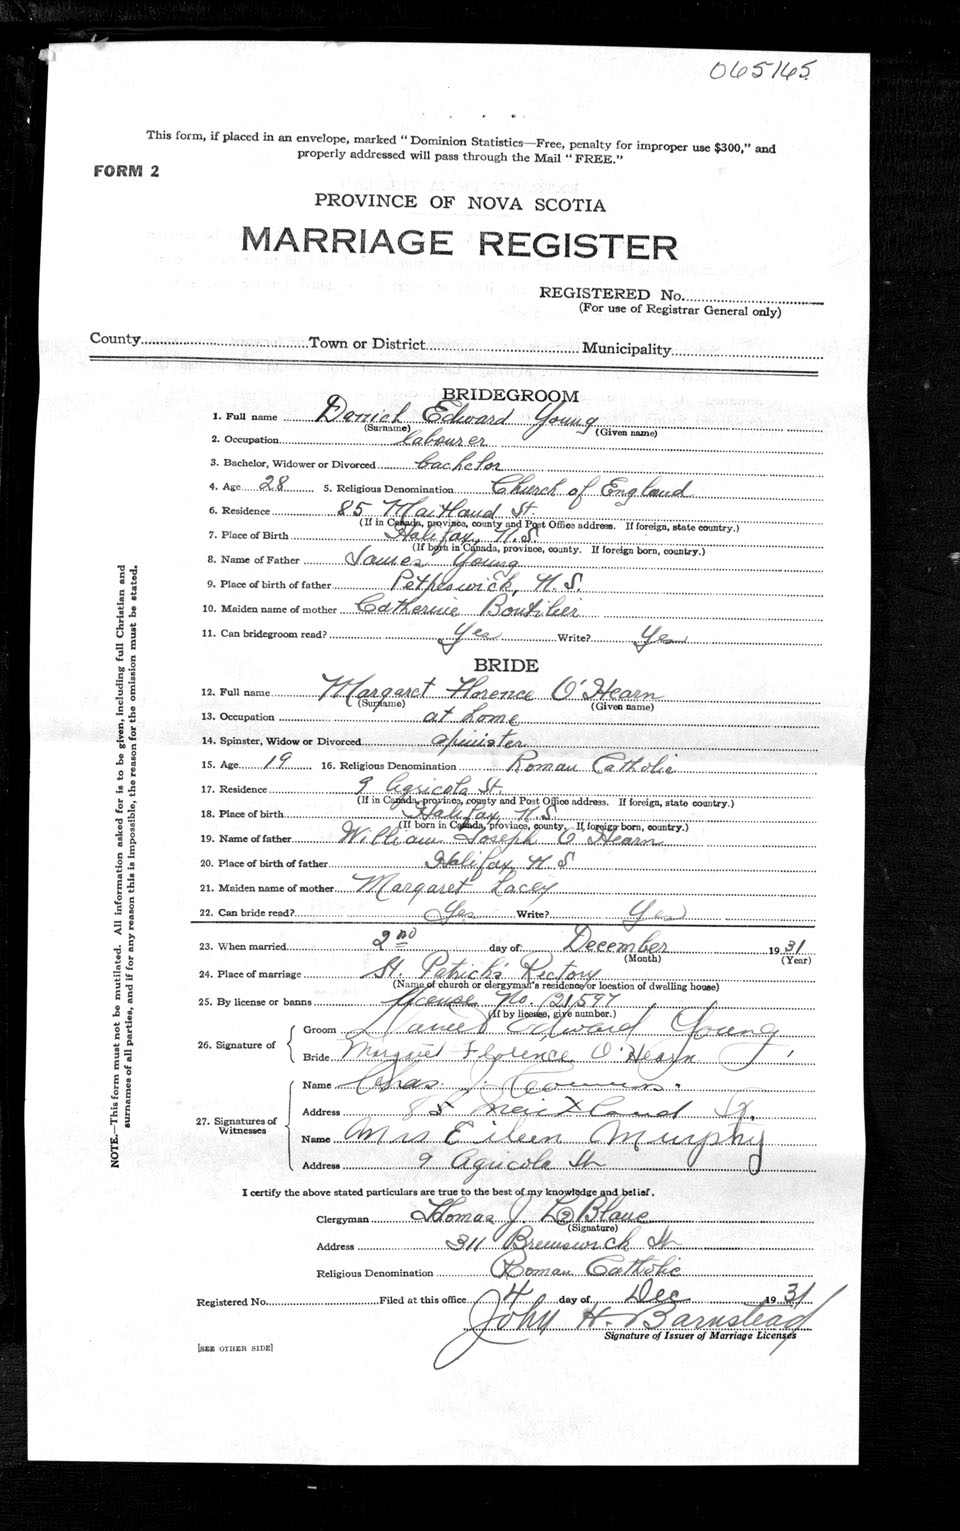 065165
This form, if placed in an envelope, marked "Dominion Statistics—Free, penalty for improper use $300," and
properly addressed will pass through the Mail "FREE."
FORM 2
PROVINCE OF NOVA SCOTIA
MARRIAGE REGISTER
REGISTERED No.
(For use of Registrar General only)
County Town or District Municipality
BRIDEGROOM
1. Full name Daniel Edward Young
(Surname) (Given name)
2. Occupation labourer
3. Bachelor, Widower or Divorced bachelor
4. Age 28 5. Religious Denomination Church of England
6. Residence 85 Maitland St.
(If in Canada, province, county and Post Office address. If foreign, state country.)
7. Place of Birth Halifax, N.S.
(If born in Canada, province, county. If foreign born, country.)
8. Name of Father James Young
9. Place of birth of father Petpeswick, N.S.
10. Maiden name of mother Catherine Boutilier
11. Can bridegroom read? Yes Write? Yes
BRIDE
12. Full name Margaret Florence O'Hearn
(Surname) (Given name)
13. Occupation at home
14. Spinster, Widow or Divorced spinister
15. Age 19 16. Religious Denomination Roman Catholic
17. Residence 9 Agricola St.
(If in Canada, province, county and Post Office address. If foreign, state country.)
18. Place of birth Halifax, N.S.
(If born in Canada, province, county, If foreign born, country.)
19. Name of father William Joseph O'Hearn
20. Place of birth of father Halifax, N.S
21. Maiden name of mother Margaret Lacey
22. Can bride read? Yes Write? Yes
23. When married 2nd day of December 1931
(Month) (Year)
24. Place of marriage St. Patrick's Rectory
(Name of church or clergyman's residence/or location of dwelling house)
25. By license or banns license No. 121,597
(If by license, give number.)
26. Signature of
Groom Daniel Edward Young
Bride Margaret Florence O'Hearn
27. Signatures of Witnesses
Name Chas. J.
Address 85 Maitland St.
Name Mrs Eileen Murphy
Address 9 Agricola St
I certify the above stated particulars are true to the best of my knowledge and belief.
Clergyman Thomas J. LeBlanc
(Signature)
Address 311 Brunswick St
Religious Denomination Roman Catholic
Registered No. Filed at this office 4 day of Dec 1931
John H. Barnstead
Signature of Issuer of Marriage Licenses
[SEE OTHER SIDE]
NOTE.—This form must not be mutilated. All information asked for is to be given, including full Christian and
surnames of all parties, and if for any reason this is impossible, the reason for the omission must be stated.